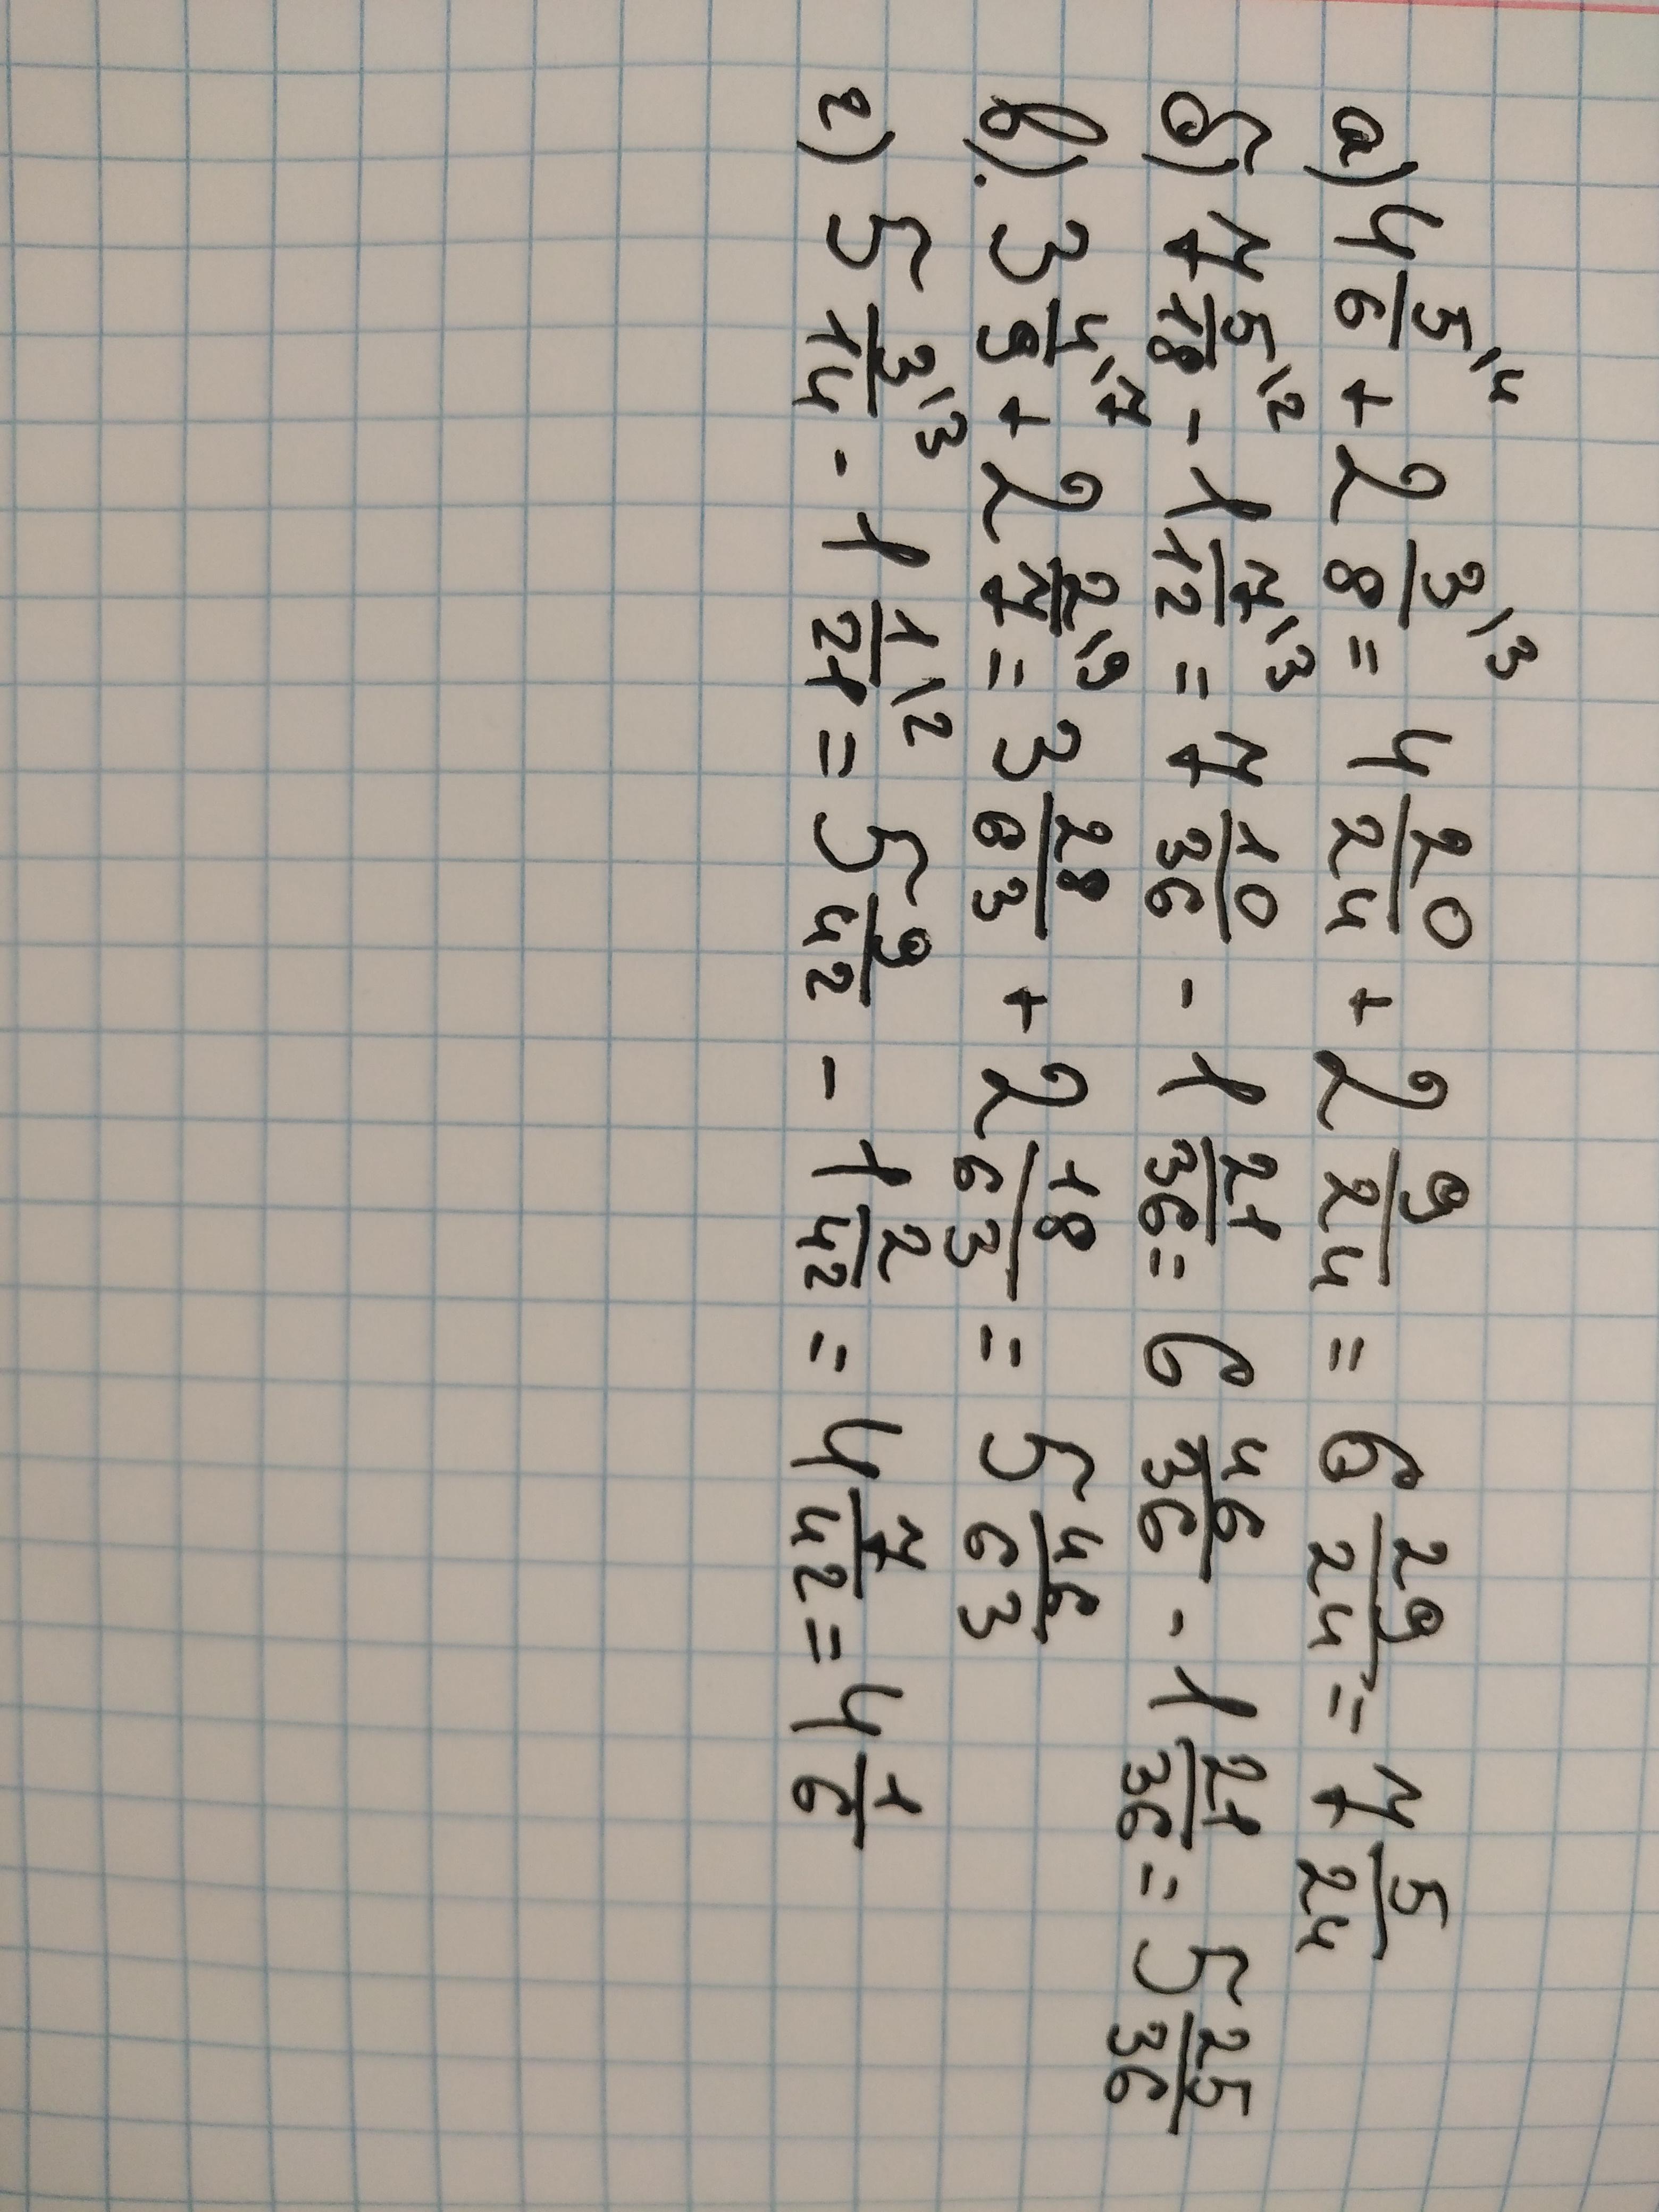 а) 4 5/6 \4 + 2 3/8 \3 = 4 20/24 + 2 9/24 = 6 29/24 = 7 5/24
б) 7 5/18 \2 - 1 7/12 \3 = 7 10/36 - 1 21/36 = 6 46/36 - 1 21/36 = 5 25/36
в). 3 4/9 \7 + 2 2/7 \9 = 3 28/63 + 2 18/63 = 5 46/63
г) 5 3/14 \3 - 1 1/21 \2 = 5 9/42 - 1 2/42 = 4 7/42 = 4 1/6